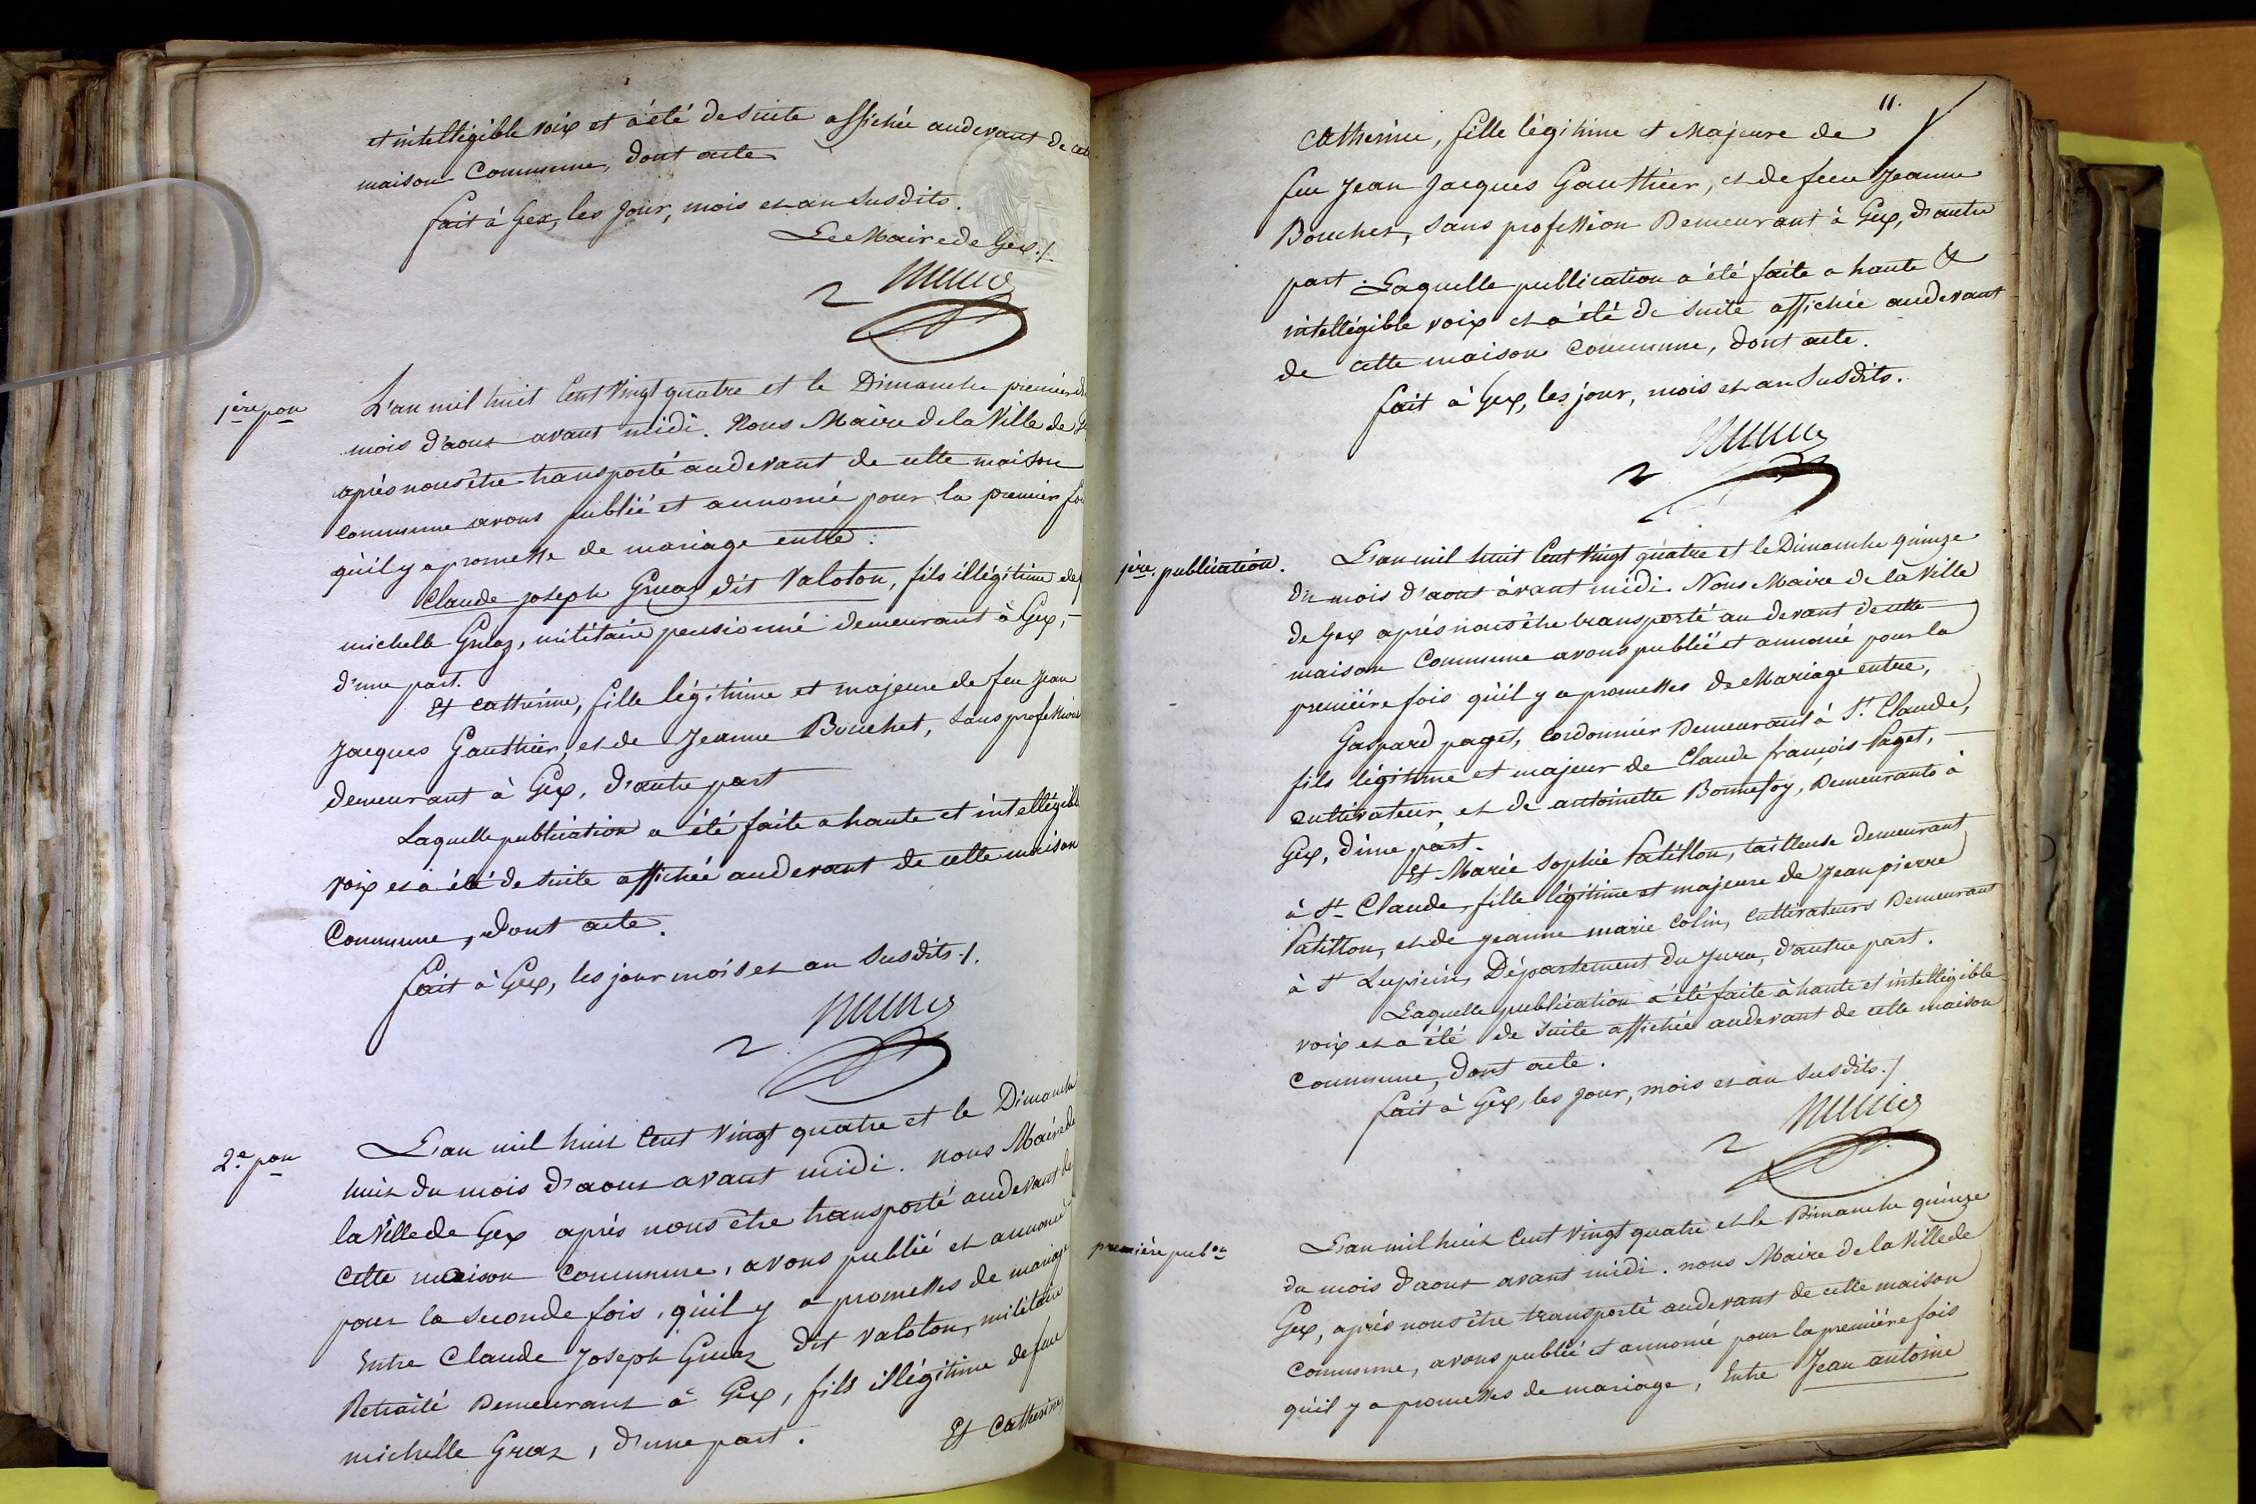 et intelligible voix et a été de suite affichée audevant de cette
maison Commune, dont acte
fait à Gex, les jour, mois et an susdits.
Le Maire de Gex ./.
1ère pon
L'an mil huit Cent Vingt quatre et le Dimanche premier du
mois d'aout avant midi. Nous Maire de la Ville de
après nous être transporté audevant de cette maison
commune avons publié et annoncé pour la premier fois
qu'il y a promesse de mariage entre.
Claude joseph Gruaz dit Valoton, fils illégitime de
michelle Gruaz, militaire pensionné demeurant à Gex,
d'une part.
Et Cathérine, fille légitime et majeure de feu Jean
Jacques Gauthier, et de Jeanne Bouchet, sans profession
demeurant à Gex, d'autre part
Laquelle publication a été faite a haute et intelligible
voix et a été de suite affichée audevant de cette maison
Commune, dont acte.
fait à Gex, les jour mois et an susdits ./.
2e pon
L'an mil huit Cent Vingt quatre et le Dimanche
huit du mois d'aout avant midi. Nous Maire de
la Ville de Gex après nous être transporté audevant de
cette maison Commune, avons publié et annoncé
pour la seconde fois, qu'il y a promesses de mariage
Entre Claude Joseph Gruaz dit Valoton, militaire
Retraité Demeurant à Gex, fils illégitime de feue
michelle Gruaz, d'une part.
Et Catherine
11.
Catherine, fille légitime et Majeure de
feu Jean Jacques Gauthier, et de feue Jeanne
Bouchet, sans profession Demeurant à Gex, d'autre
part. Laquelle publication a été faite a haute &
intelligible voix et a été de suite affichée audevant
de cette maison Commune, dont acte.
fait à Gex, les jour, mois et an susdits.
1ère publication.
L'an mil huit Cent Vingt quatre et le Dimanche quinze
du mois d'aout avant midi. Nous Maire de la Ville
de Gex après nous être transporté au devant de cette
maison Commune avons publié et annoncé pour la
première fois qu'il y a promesses de Mariage entre,
Gaspard paget, Cordonnier Demeurant à St. Claude,
fils légitime et majeur de Claude françois Paget,
cultivateur, et de antoinette Bonnefoy, Demeurants à
Gex, d'une part.
Et Marie Sophie Patillon, tailleuse demeurant
à St Claude, fille légitime et majeure de Jean pierre
Patillon, et de jeanne marie Colin, cultivateurs Demeurant
à St Lupicin, Département du Jura, d'autre part.
Laquelle publication a été faite à haute et intelligible
voix et a été de suite affichée audevant de cette maison
Commune, dont acte.
fait à Gex, les jour, mois et an susdits ./
première pubon
L'an mil huit Cent Vingt quatre et le Dimanche quinze
du mois d'aout avant midi. nous Maire de la Ville de
Gex, après nous être transporté audevant de cette maison
Commune, avons publié et annoncé pour la première fois
qu'il y a promesses de mariage, Entre Jean antoine